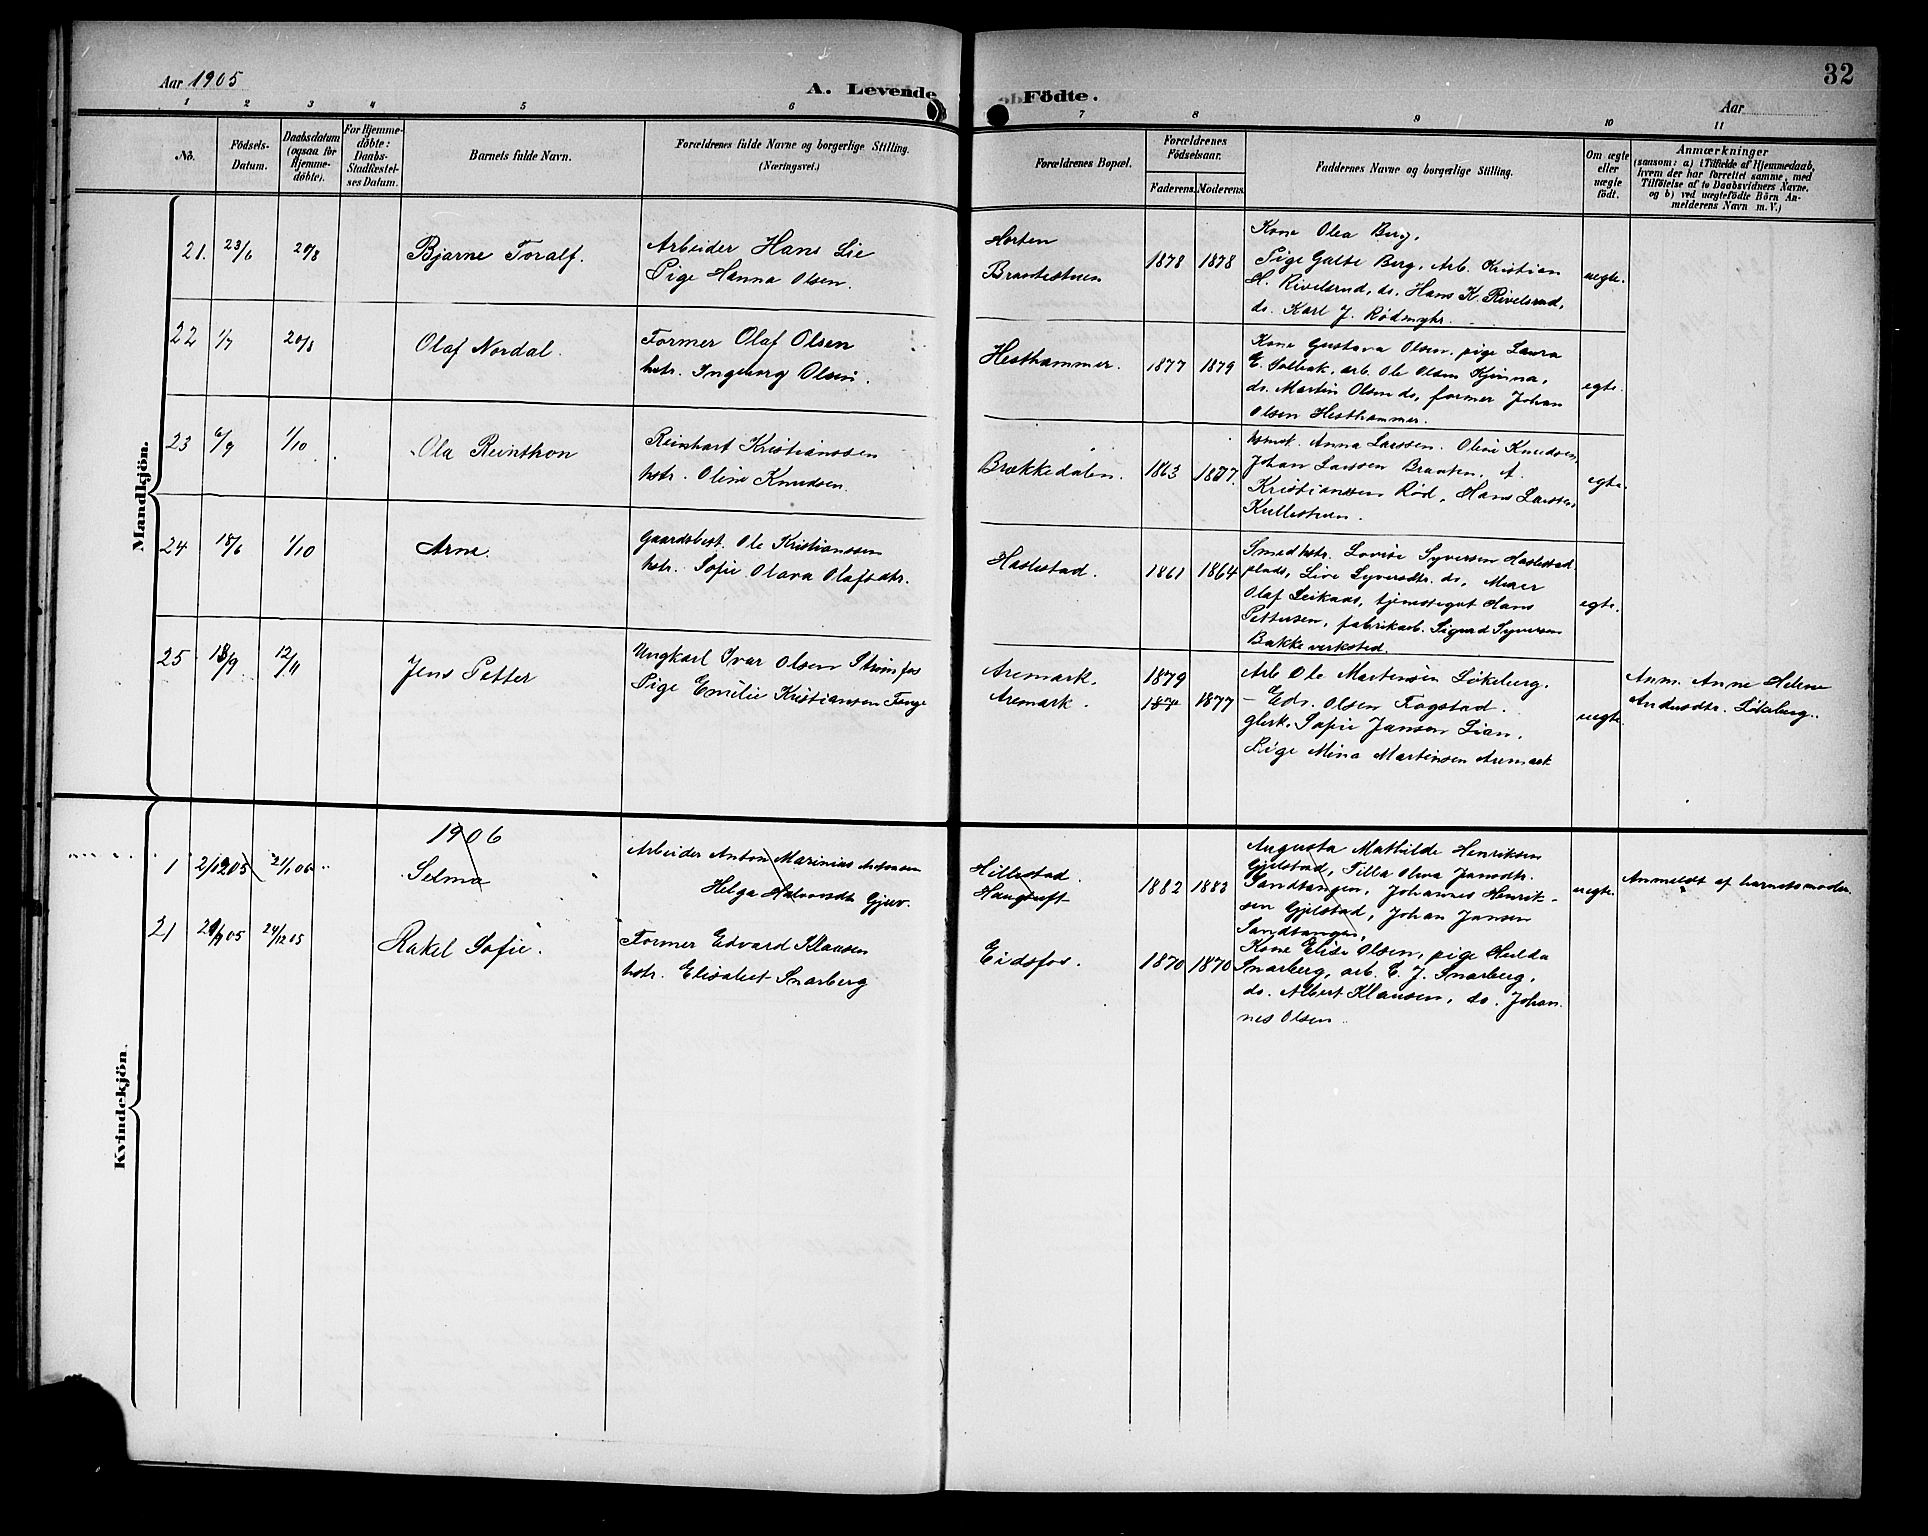 Aar 1905
A. Levende Födte.
32
Aar
1 2 3 4 5 6 7 8 9 10 11
No.
Födsels-
Datum.
Daabsdatum
(ogsaa for
Hjemme-
döbte).
For Hjemme-
döbte:
Daabs-
Stadfestel-
ses Datum.
Barnets fulde Navn.
Forældrenes fulde Navne og borgerlige Stilling.
(Næringsvei.)
Forældrenes Bopæl.
Forældrenes
Födselsaar.
Faderens. Moderens.
Faddernes Navne og borgerlige Stilling.
Om ægte
eller
uægte
födt.
Anmærkninger
(saasom: a) i Tilfælde af Hjemmedaab,
hvem der har forrettet samme, med
Tilföielse af to Daabsvidners Navne,
og b) ved uægtefödte Börn An-
melderens Navn m. V.)
Mandkjön.
21. 23/6 20/8 Bjarne Toralf.
Arbeider Hans Lie
Pige Hanna Olsen.
Horten
Braatestuen
1878 1878
Kone Olea Berg,
Pige Galte Berg, Arb. Kristian
H. Rivelsrud, ds. Hans K. Rivelsrud,
ds. Karl J. Rødmyhr.
uegte.
22 1/7 20/8 Olaf Nordal.
Former Olaf Olsen
hstr. Ingeborg Olsen.
Hesthammer. 1877 1879
Kone Gustava Olsen, pige Laura
E. Solbak, arb. Ole Olsen
ds. Martin Olsen ds, former Johan
Olsen Hesthammer.
egte.
23 6/9 1/10 Ola Reinthon
Reinhart Kristianssen
hstr. Oline Knudsen.
Brækkedalen. 1863 1877.
Anna Larssen. Oline Knudsen,
Johan Larssen Braaten, A.
Kristianssen Rød, Hans Larssen,
Kullestuen.
egte.
24 18/6 1/10 Arne.
Gaardsbest. Ole Kristianssen
hstr. Sofie Olava Olafsdtr.
Haslestad. 1861 1864
Smedhstr. Lovise Syversen Haslestad
plads, Live Syversdtr. ds, Murer
Olaf Leikaas, tjenestegut Hans
Pettersen, fabrikarb. Sigurd Syversen
Bakke verksted.
egte.
25 18/9 12/11 Jens Petter
Ungkarl Ivar Olsen Strømfos
Pige Emilie Kristiansen Tange
Aremark.
Aremark.
1879
1877
Arb Ole Martensen Løkeberg.
– Edv. Olsen Fagstad.
Sofie Jansen Lian.
Pige Mina Martinsen Aremark
uegte.
Anm. Anne Helene
Andersdtr. Løkeberg.
Kvindekjön.
1906
1 2/12 05 21/1 06 Selma
Arbeider Anton Marinius Antonsen
Helga Halvorsdtr Gjerv.
Hillestad.
Haugtuft
1882 1883
Augusta Mathilde Henriksen
Gjelstad, Tilla Oliva Jansdtr.
Sandtangen, Johannes Henrik-
sen Gjelstad, Johan Jansen
Sandtangen,
uegte.
Anmeldt af barnets moder
21 29/9 05 24/12 05 Rakel Sofie.
Former Edvard Klausen
hstr. Elisabet Snarberg
Eidsfos. 1870 1870
Kone Elise Olsen, pige Hulda
Snarberg, arb. C. J. Snarberg,
ds. Albert Klausen, ds. Johan-
nes Olsen